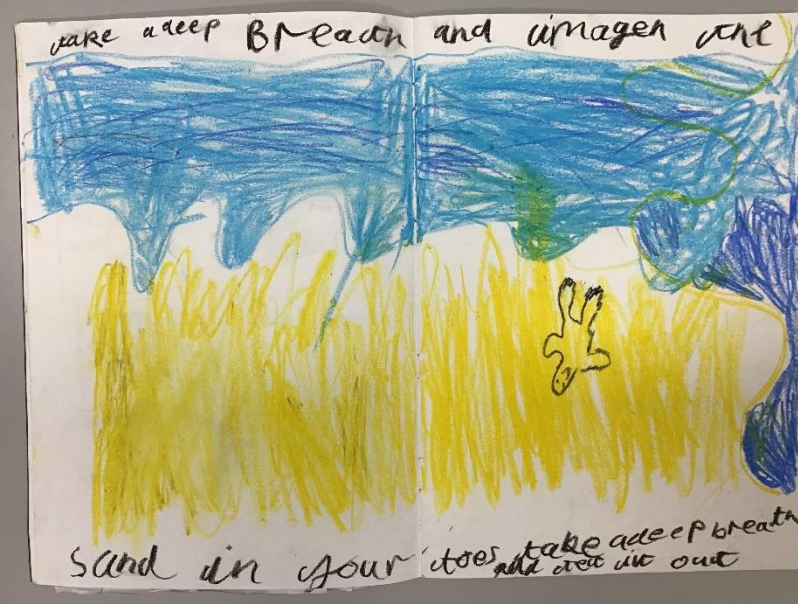 take a deep Breath and imagen the
Sand in your toes take a deep breath
and let it out